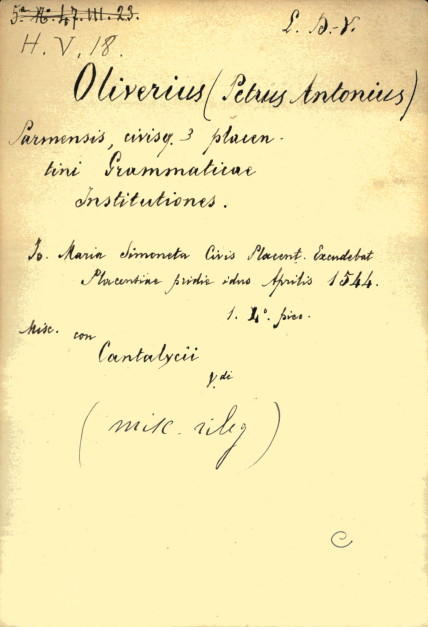 5ª Nº 47. III. 23.
L. B.-V.
H. V. 18.
Oliverius (Petrus Antonius)
Parmensis, civisq. 3 placen-
tini Grammaticae
Institutiones.
Jo. Maria Simoneta Civis Placent. Excudebat
Placentiae pridie idus Aprilis 1544.
1. 4º. picc.
Misc. con
Cantalycii
V. di
(misc. rileg)
C